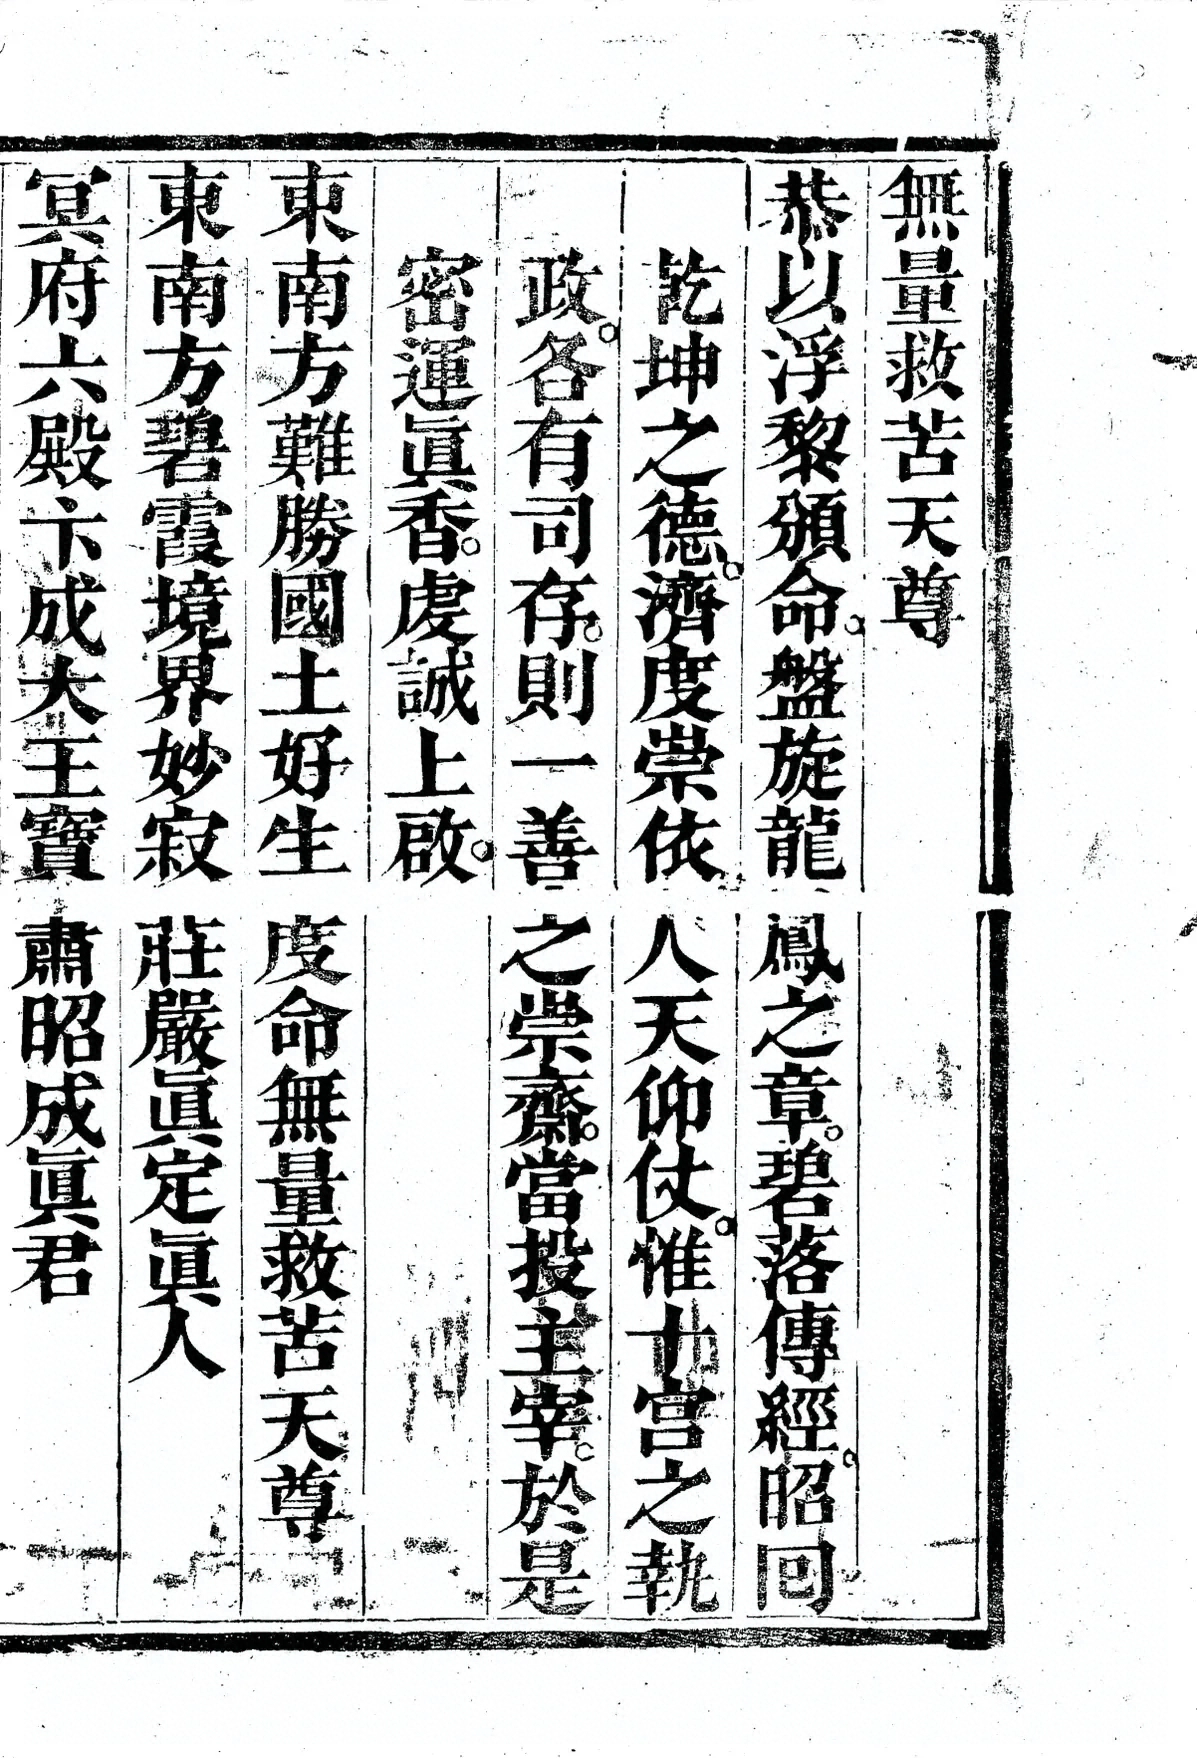 無量救苦天尊
恭以浮黎頒命。盤旋龍鳳之章。碧落傳經。昭回
訖坤之德。濟度崇依人天仰仗。惟十宮之執
政。各有司存。則一善之崇齋。當投主宰。於是
密運眞香。虔誠上啟。
東南方難勝國土好生度命無量救苦天尊
東南方碧霞境界妙寂莊嚴眞定眞人
冥府六殿卞成大王寶肅昭成眞君